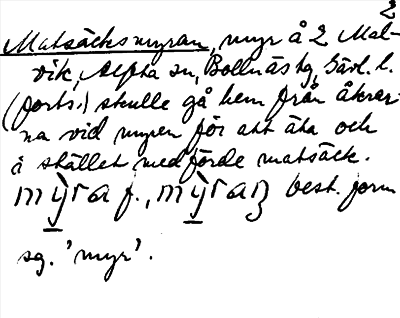 2
Matsäcksmyran, myr å 2 Mal-
vik, Alfta sn, Bollnäs tg, Gävl. l.
(forts.) skulle gå hem från åkrar-
na vid myren för att äta och
i stället medförde matsäck.
mỳra f., mỳraꞃ best. form
sg. 'myr'.